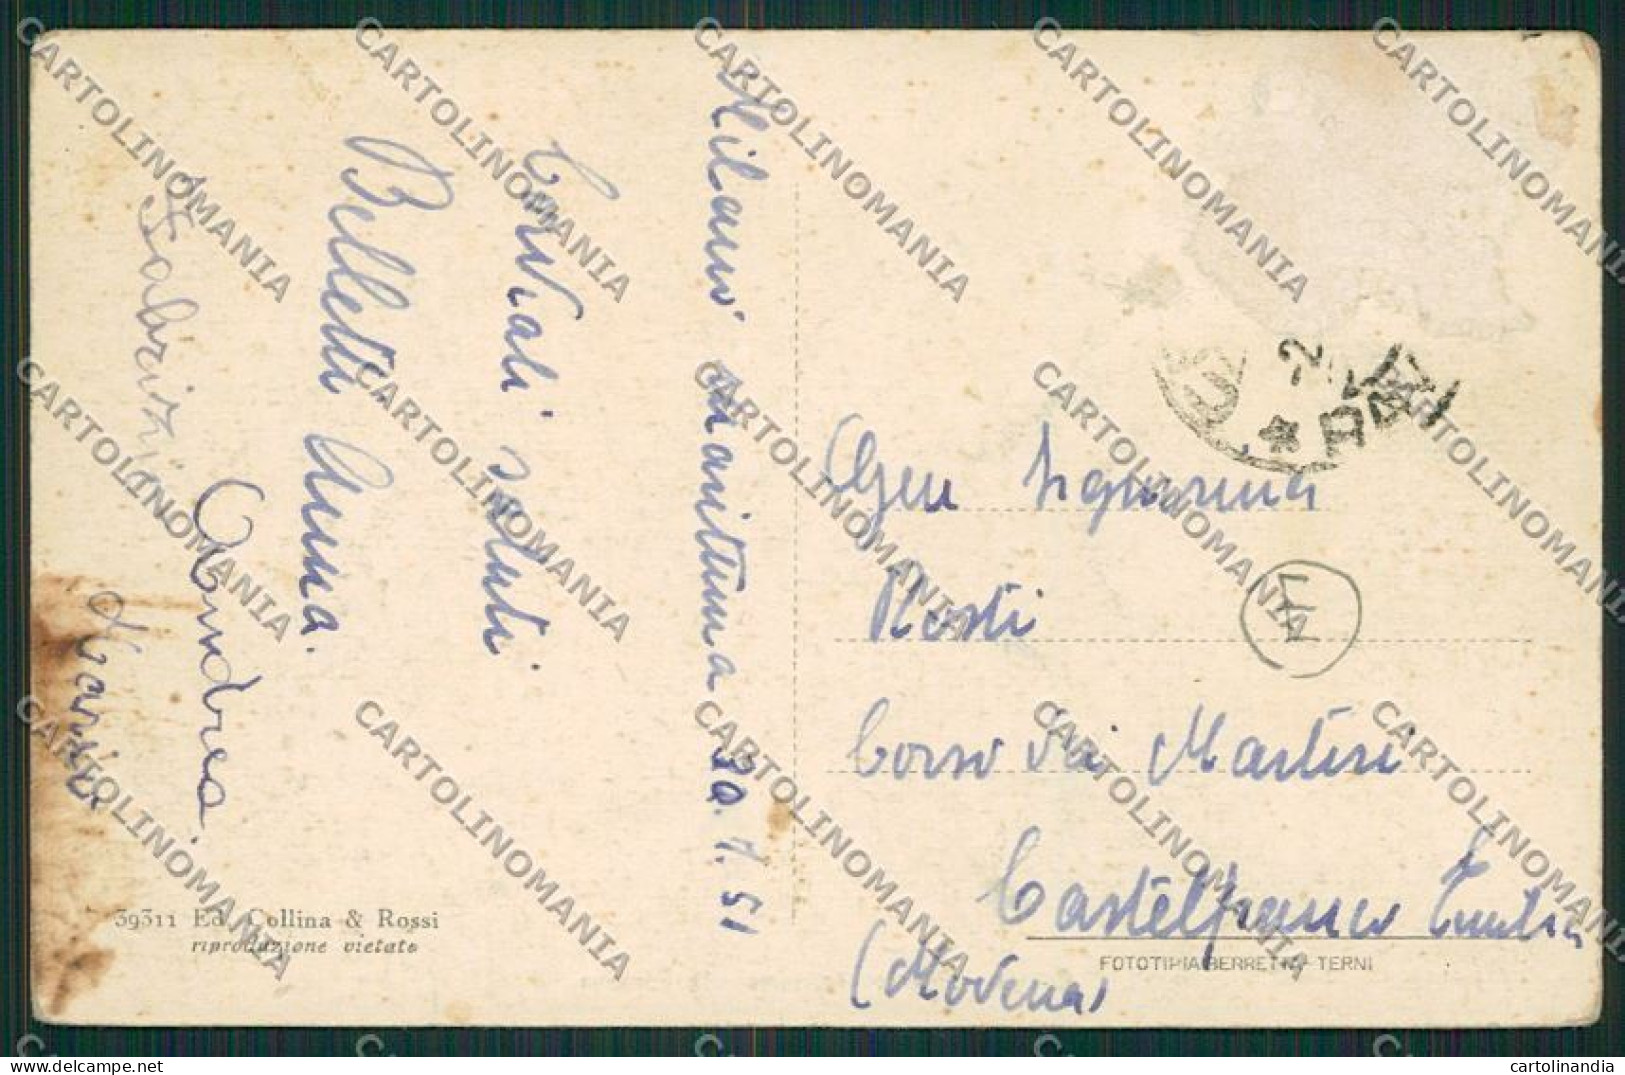 Milano Marittima 30.7.51
Cordiali saluti
Belletti Anna.
Fabrizio
Andrea
Maria
Gen Signorina
Rosti
Corso dei Martiri
Castelfranco Emilia
(Modena)
39311 Ed. Collina & Rossi
riproduzione vietata
FOTOTIPIA BERRETTA TERNI
CARTOLINOMANIA
cartolinandia